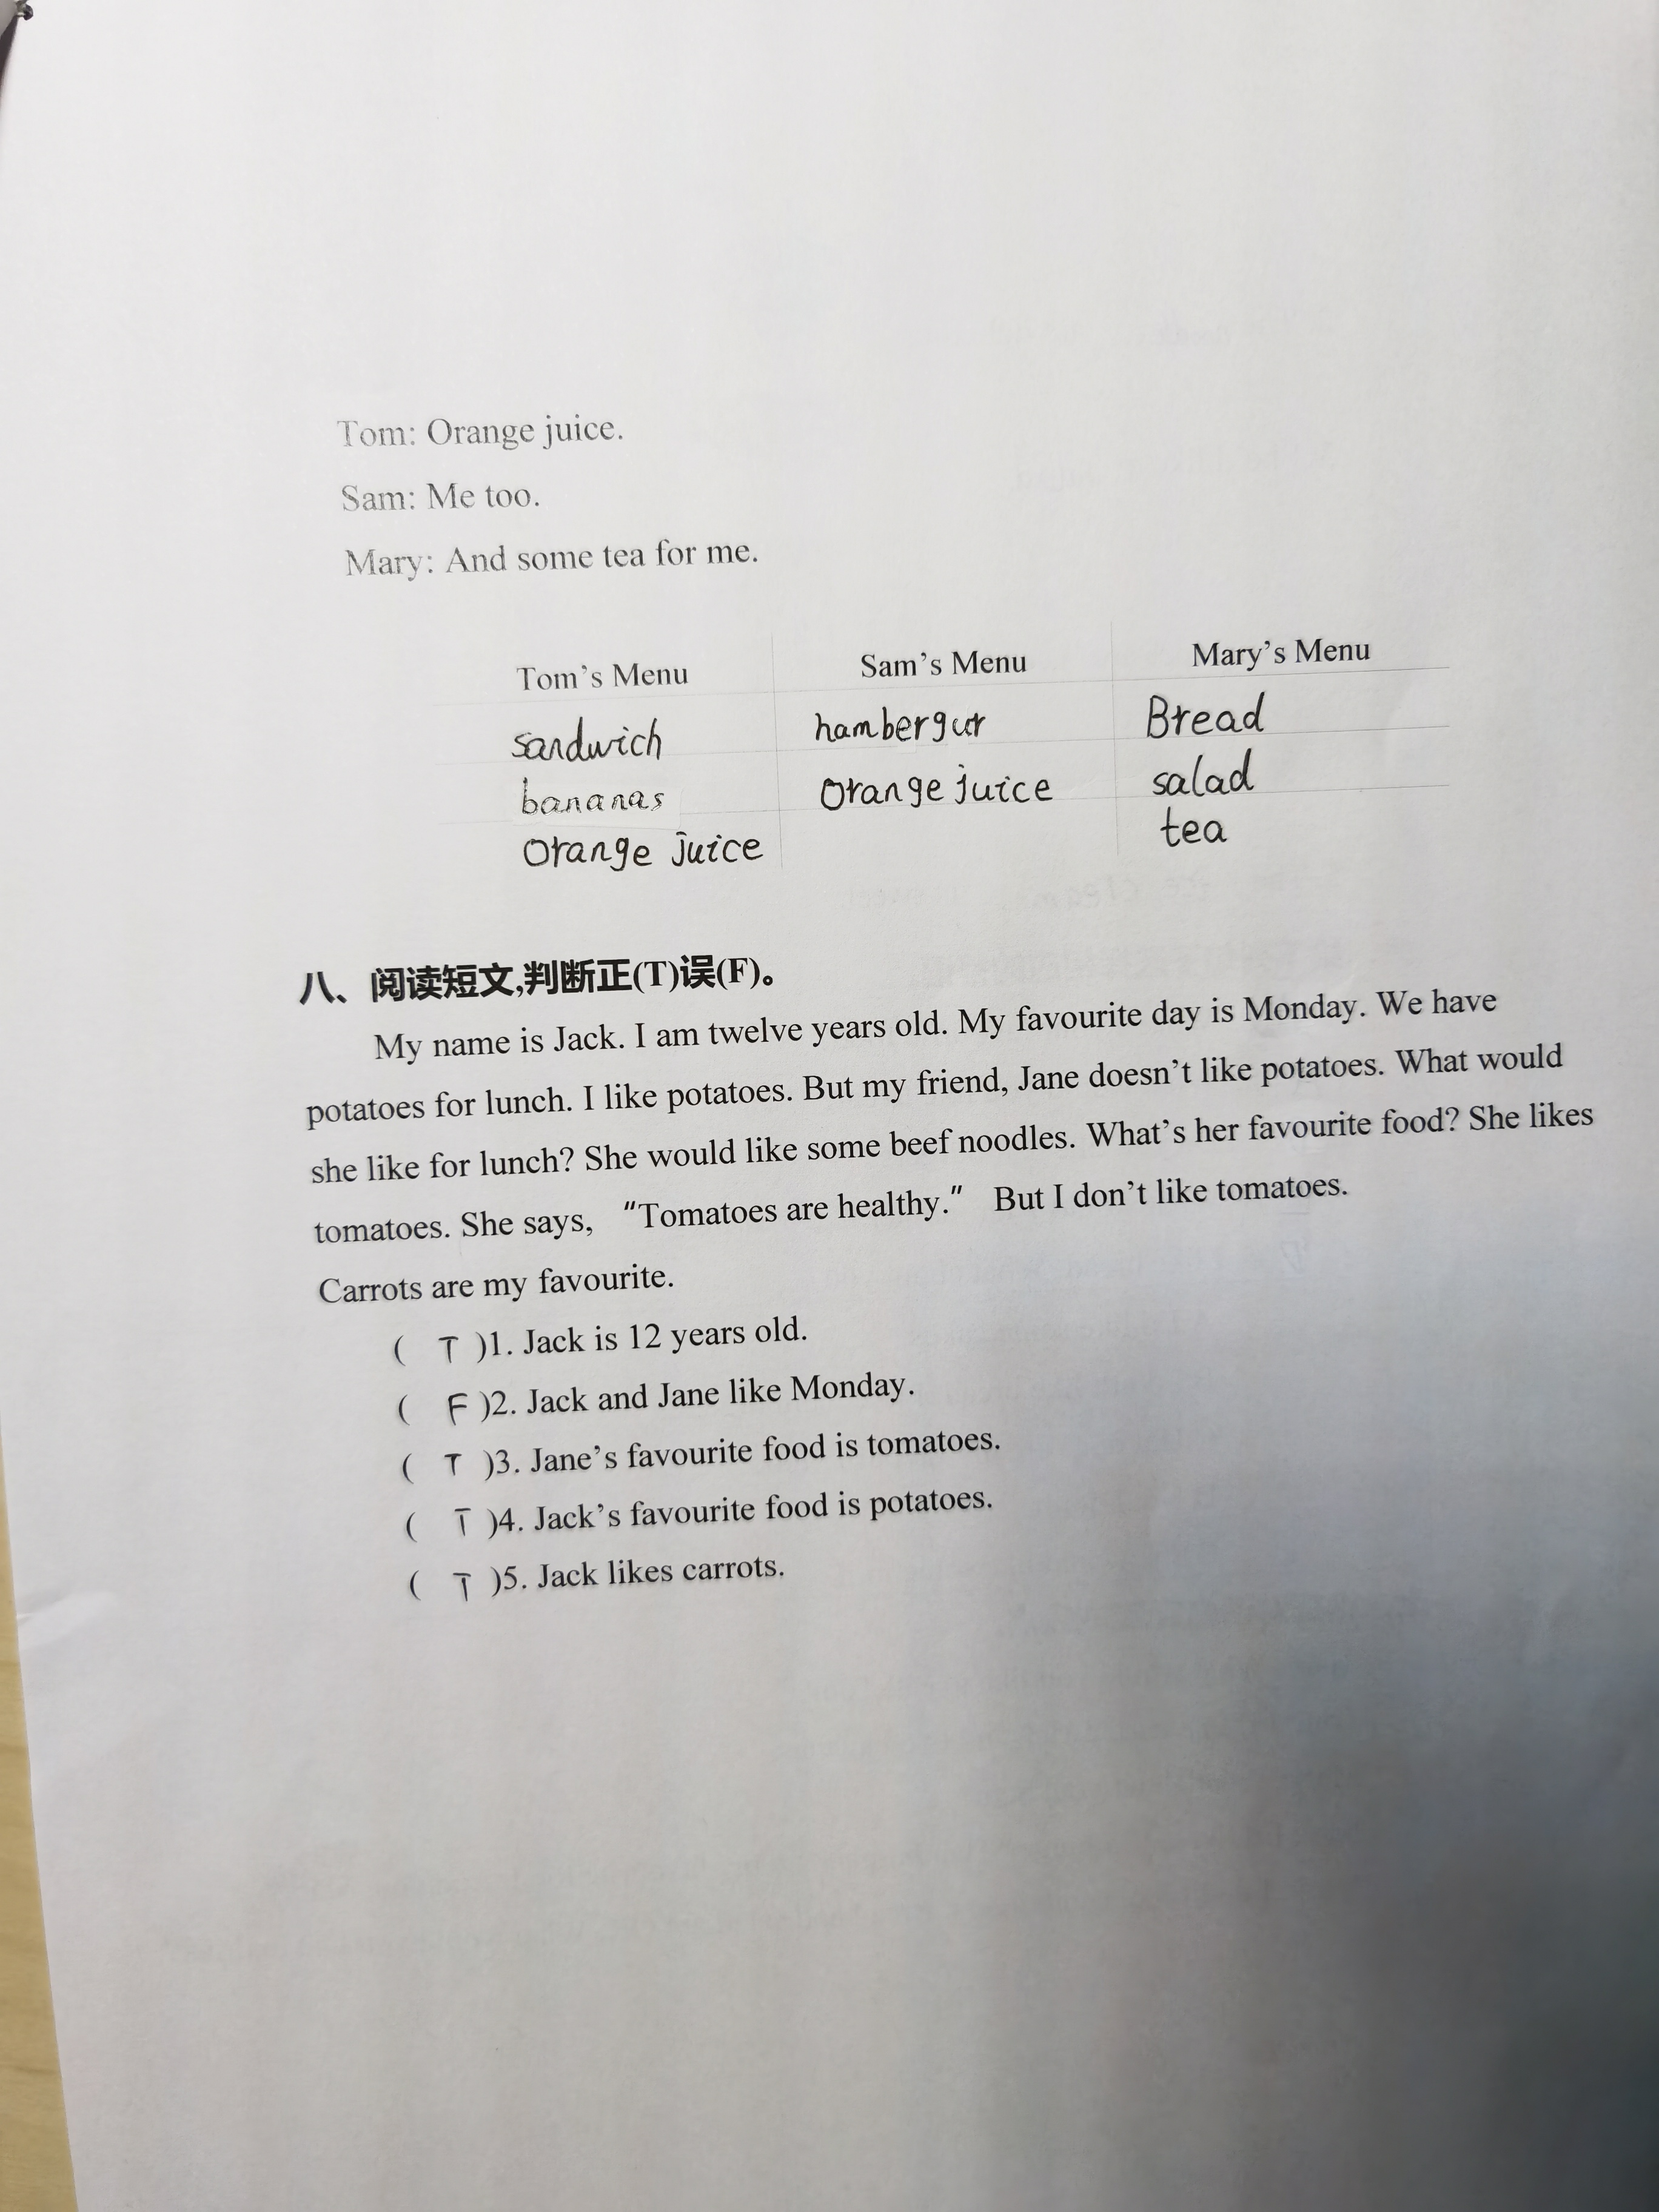 Tom: Orange juice.
Sam: Me too.
Mary: And some tea for me.
Tom's Menu Sam's Menu Mary's Menu
sandwich hambergur Bread
bananas Orange juice salad
Orange juice tea
八、阅读短文,判断正(T)误(F)。
My name is Jack. I am twelve years old. My favourite day is Monday. We have
potatoes for lunch. I like potatoes. But my friend, Jane doesn't like potatoes. What would
she like for lunch? She would like some beef noodles. What's her favourite food? She likes
tomatoes. She says, "Tomatoes are healthy." But I don't like tomatoes.
Carrots are my favourite.
( T )1. Jack is 12 years old.
( F )2. Jack and Jane like Monday.
( T )3. Jane's favourite food is tomatoes.
( T )4. Jack's favourite food is potatoes.
( T )5. Jack likes carrots.